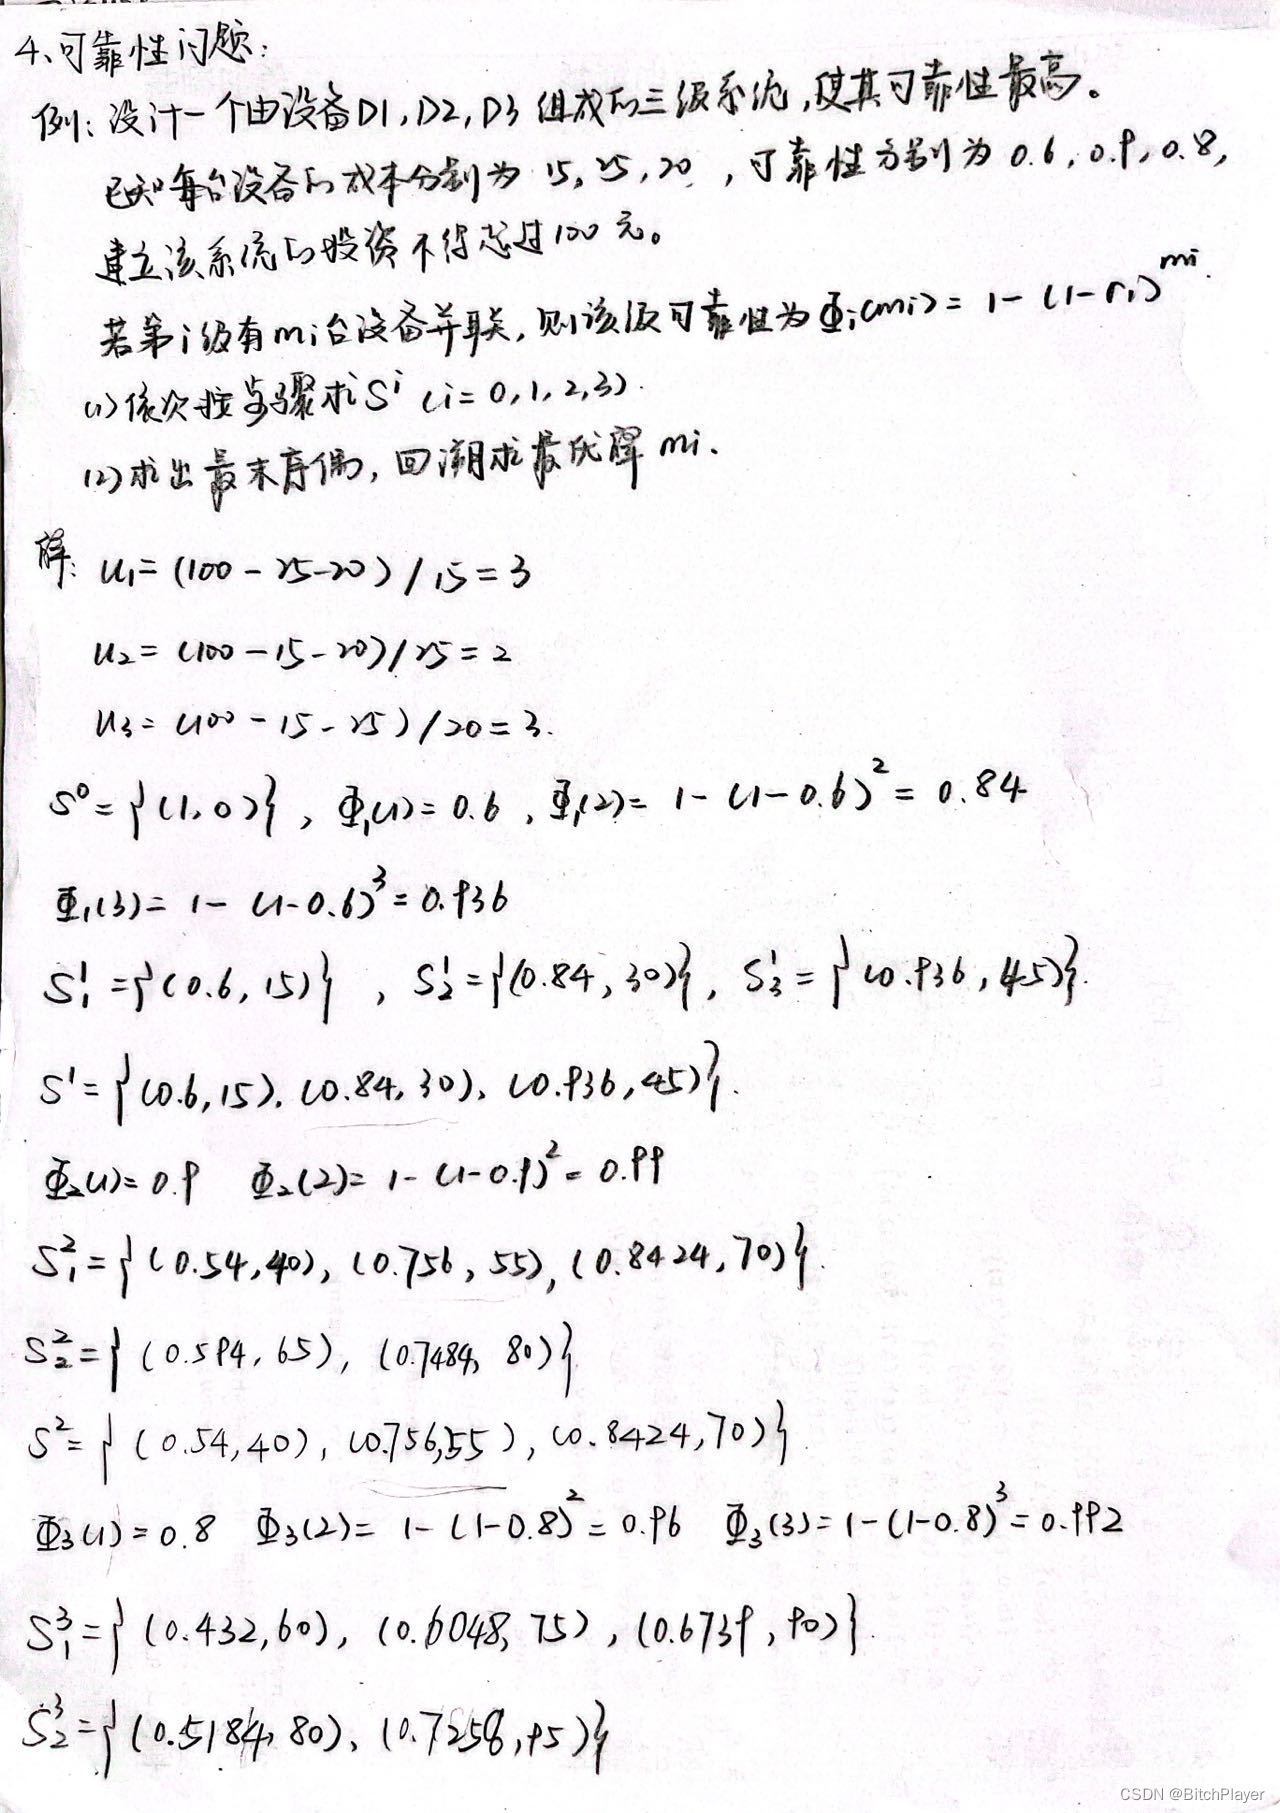 4、可靠性问题:
例: 设计一个由设备D1,D2,D3组成的三级系统,使其可靠性最高。
已知每台设备的成本分别为15,25,20,可靠性分别为0.6,0.9,0.8,
建立该系统的投资不得超过100元。
若第i级有mi台设备并联,则该级可靠性为Φi(mi)=1-(1-ri)^mi.
(1)依次按步骤求S^i (i=0,1,2,3).
(2)求出最末序偶,回溯求最优解mi.
解: u₁=(100-25-20)/15=3
u₂=(100-15-20)/25=2
u₃=(100-15-25)/20=3.
S⁰={(1,0)}, Φ₁(1)=0.6, Φ₁(2)=1-(1-0.6)²=0.84
Φ₁(3)=1-(1-0.6)³=0.936
S₁¹={(0.6,15)}, S₂¹={(0.84,30)}, S₃¹={(0.936,45)}.
S¹={(0.6,15),(0.84,30),(0.936,45)}.
Φ₂(1)=0.9 Φ₂(2)=1-(1-0.9)²=0.99
S₁²={(0.54,40),(0.756,55),(0.8424,70)}.
S₂²={(0.594,65),(0.7484,80)}
S²={(0.54,40),(0.756,55),(0.8424,70)}
Φ₃(1)=0.8 Φ₃(2)=1-(1-0.8)²=0.96 Φ₃(3)=1-(1-0.8)³=0.992
S₁³={(0.432,60),(0.6048,75),(0.6739,90)}.
S₂³={(0.5184,80),(0.7258,95)}
CSDN @BitchPlayer